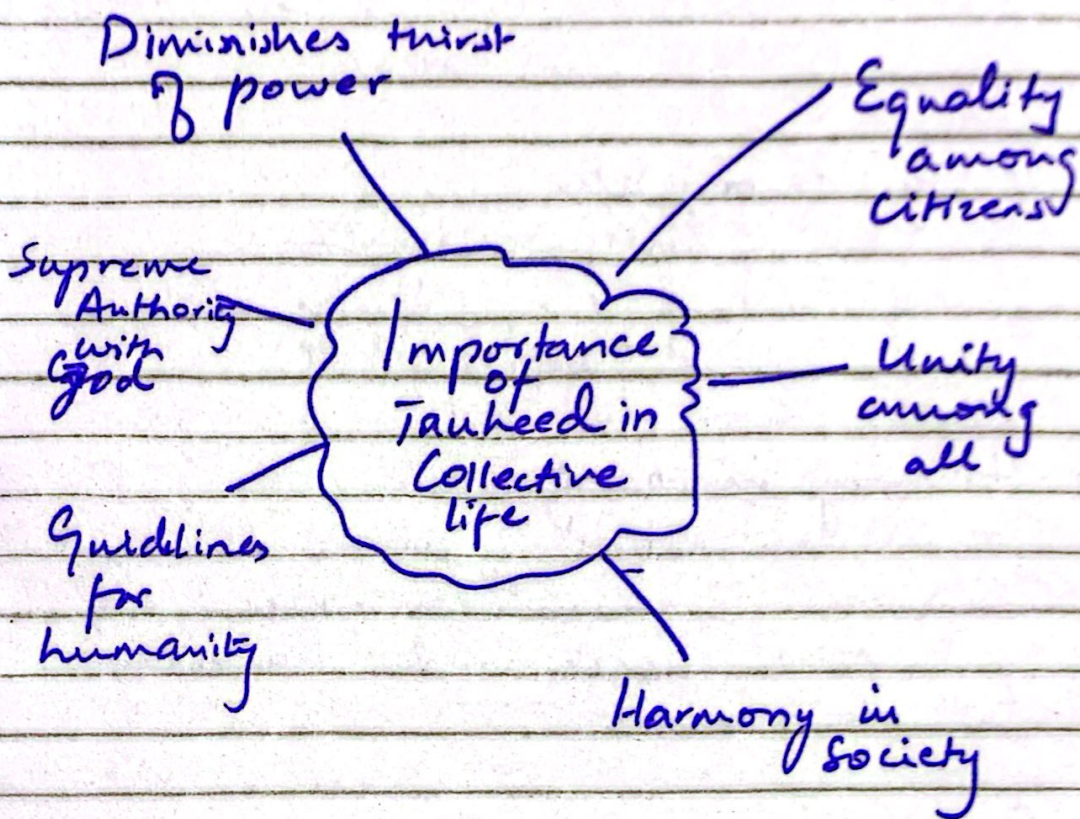 Diminishes thirst
of power
Equality
among
citizens
Supreme
Authority
with
God
Importance
of
Tauheed in
Collective
life
Unity
among
all
Guidelines
for
humanity
Harmony in
society